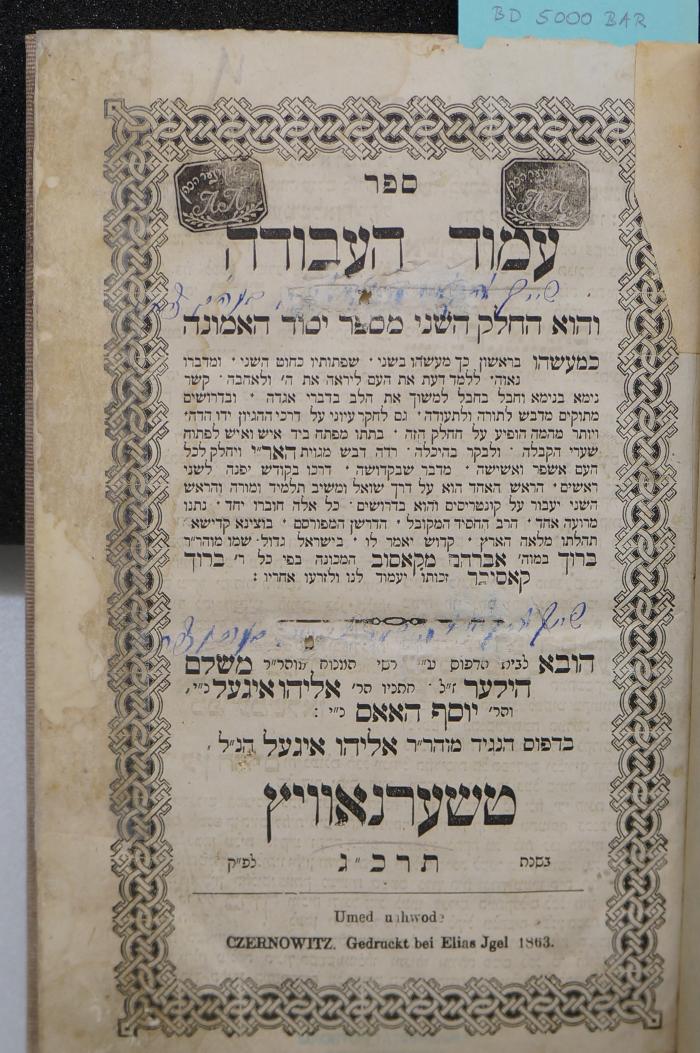 BD 5000 BAR
ספר
עמוד העבודה
והוא החלק השני מספר יסוד האמונה
כמעשהו בראשון כך מעשהו בשני · שפתותיו כחוט השני · ומדברו
נאוה · ללמד דעת את העם ליראה את ה' ולאהבה · קשר
נימא בנימא וחבל בחבל למשוך את הלב בדברי אגדה · ובדרושים
מתוקים מדבש לתורה ולתעודה · גם לחקר עיוני על דרכי ההגיון ידו הדה ·
ויותר מהמה הופיע על החלק הזה · בתתו מפתח ביד איש ואיש לפתוח
שערי הקבלה · ולבקר בהיכלה · רדה דבש מגוית האר"י ויחלק לכל
העם אשפר ואשישה · מדבר שבקדושה · דרכו בקודש יפנה לשני
ראשים · הראש האחד הוא על דרך שואל ומשיב תלמיד ומורה והראש
השני יעבור על קונטריסים והוא בדרושים · כל אלה חוברו יחד · נתנו
מרועה אחד · הרב החסיד המקובל · הדרשן המפורסם · בוצינא קדישא
תהלתו מלאה הארץ · קדוש יאמר לו · בישראל גדול שמו מוהר"ר
ברוך במוה' אברהם מקאסוב המכונה בפי כל ר' ברוך
קאסיבר זכותו יעמוד לנו ולזרעו אחריו :
הובא לבית הדפוס ע"י משלם
הילער ז"ל · אליהו איגעל נ"י,
יוסף האאס נ"י :
בדפוס הנגיד מוהר"ר אליהו איגעל הנ"ל .
טשערנאוויץ
בשנת תרכ"ג לפ"ק
Umed
CZERNOWITZ. Gedruckt bei Elias Jgel 1863.